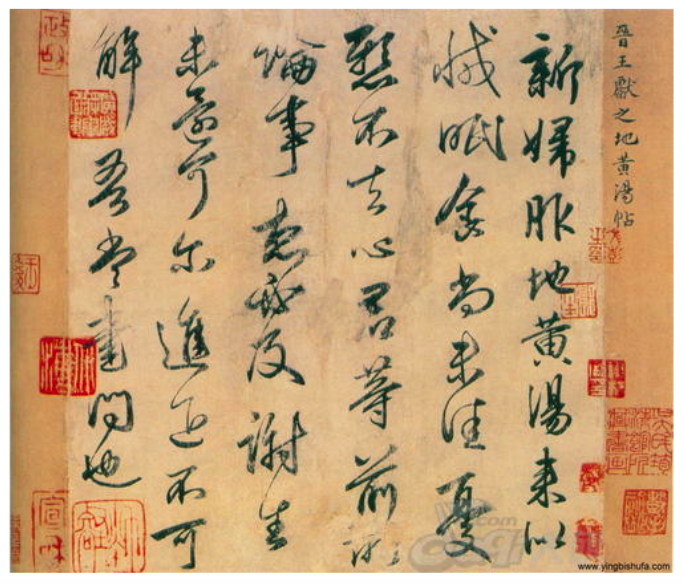 晉王獻之地黃湯帖
新婦服地黃湯來似
減眠食尚未佳憂
懸不去心君等前所
論事想必及謝生
未還可爾進退不可
解吾當書問也
www.yingbishufa.com